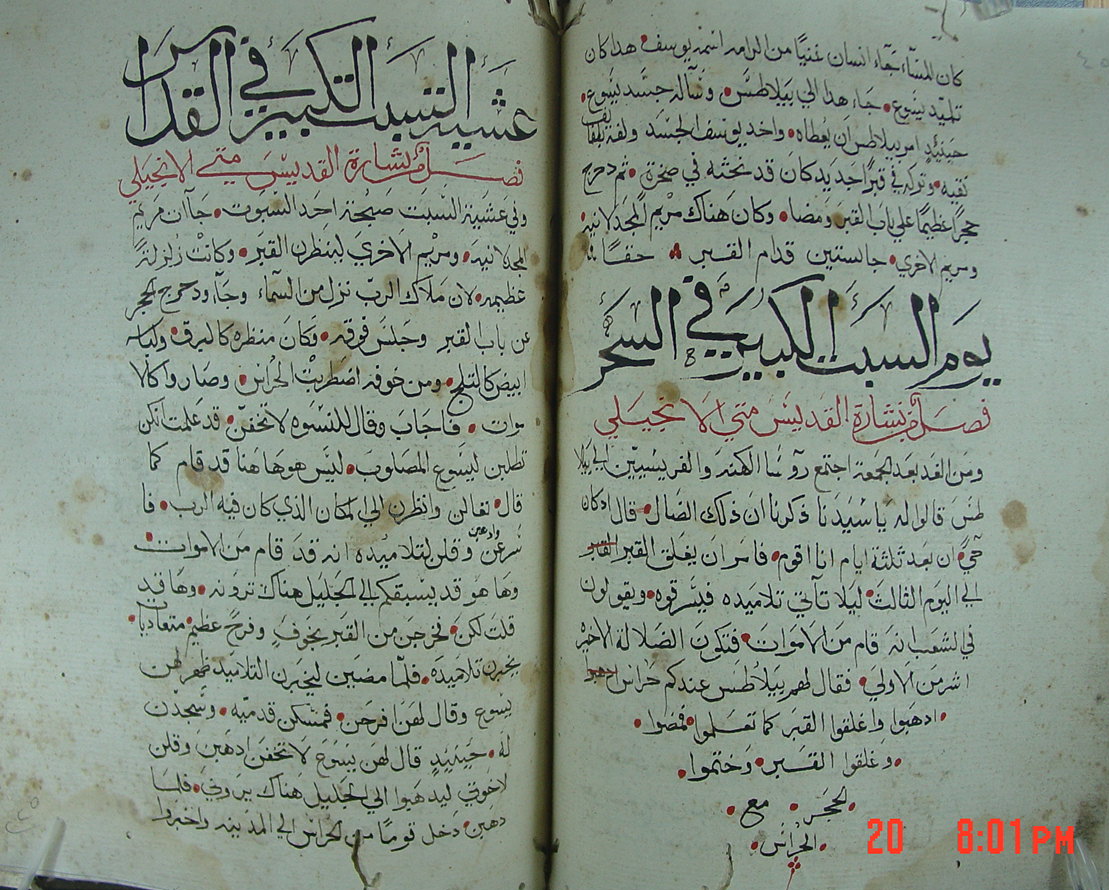 كان للمسآء جآء انسان غنيًا من الرامه اسمه يوسف هدا كان
تلميد يسوع جآء هدا الي بيلاطس وسأله جسد يسوع
حينيدٍ امر بيلاطس ان يعطاه واخد يوسف الجسد ولفه بلفايف
نقيه وتركه في قبرًا جديد كان قد نحته في صخرة ثم دحرج
حجرًا عظيمًا علي باب القبر ومضا وكان هناك مريم المجدلانيه
ومريم الاخري جالستين قدام القبر حقًا
يوم السبت الكبير في السحر
فصل من بشارة القديس متي الانجيلي
ومن الغد بعد الجمعة اجتمع روسا الكهنه والفريسيين الي بيلا
طس قالوا له ياسيدنا ذكرنا ان ذلك الضال قال اد كان
حي ان بعد ثلثة ايام انا اقوم فامر ان يغلق القبر القبر
الي اليوم الثالث ليلا تآتي تلاميده فيسرقوه ويقولون
في الشعب انه قام من الاموات فتكون الضلاله الاخيره
اشر من الاولي فقال لهم بيلاطس عندكم حراس ادهبوا
ادهبوا واغلقوا القبر كما تعلموا فمضوا
وغلقوا القبر وختموا
الحجر مع
الحراس
عشية السبت الكبير في القداس
فصل من بشارة القديس متي الانجيلي
وفي عشية السبت صبيحة احد السبوت جآان مريم
المجدلانيه ومريم الاخري لينظرن القبر وكانت زلزلةً
عظيمه لان ملاك الرب نزل من السمآء وجآء ودحرج الحجر
عن باب القبر وجلس فوقه وكان منظره كالبرق ولباسه
ابيض كالثلج ومن خوفه اضطربت الحراس وصاروا كالا
موات فاجاب وقال للنسوه لا تخفن قد علمت انكن
تطلبن ليسوع المصلوب ليس هو هاهنا قد قام كما
قال تعالن وانظرن الي المكان الذي كان فيه الرب فا
سرعن وادهبن وقلن لتلاميده انه قد قام من الاموات
وها هو قد يسبقكم الي الجليل هناك ترونه وها قد
قلت لكن فخرجن من القبر بخوفٍ وفرحٍ عظيم متعاديات
يخبرن تلاميده فلما مضين ليخبرن التلاميد ظهر لهن
يسوع وقال لهن افرحن فمسكن قدميه وسجدن
له حينيدٍ قال لهن يسوع لا تخفن ادهبن وقلن
لاخوتي ليدهبوا الي الجليل هناك يروني فلما
دهبن دخل قومًا من الحراس الي المدينه واخبروا
20 8:01 PM